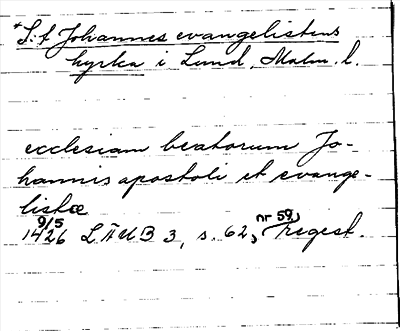 *S:t Johannes evangelistens
kyrka i Lund, Malm. l.
ecclesiam beatorum Jo-
hannis apostoli et evange-
listæ
9/5
1426 LÄUB 3, s. 62, nr 59, regest.